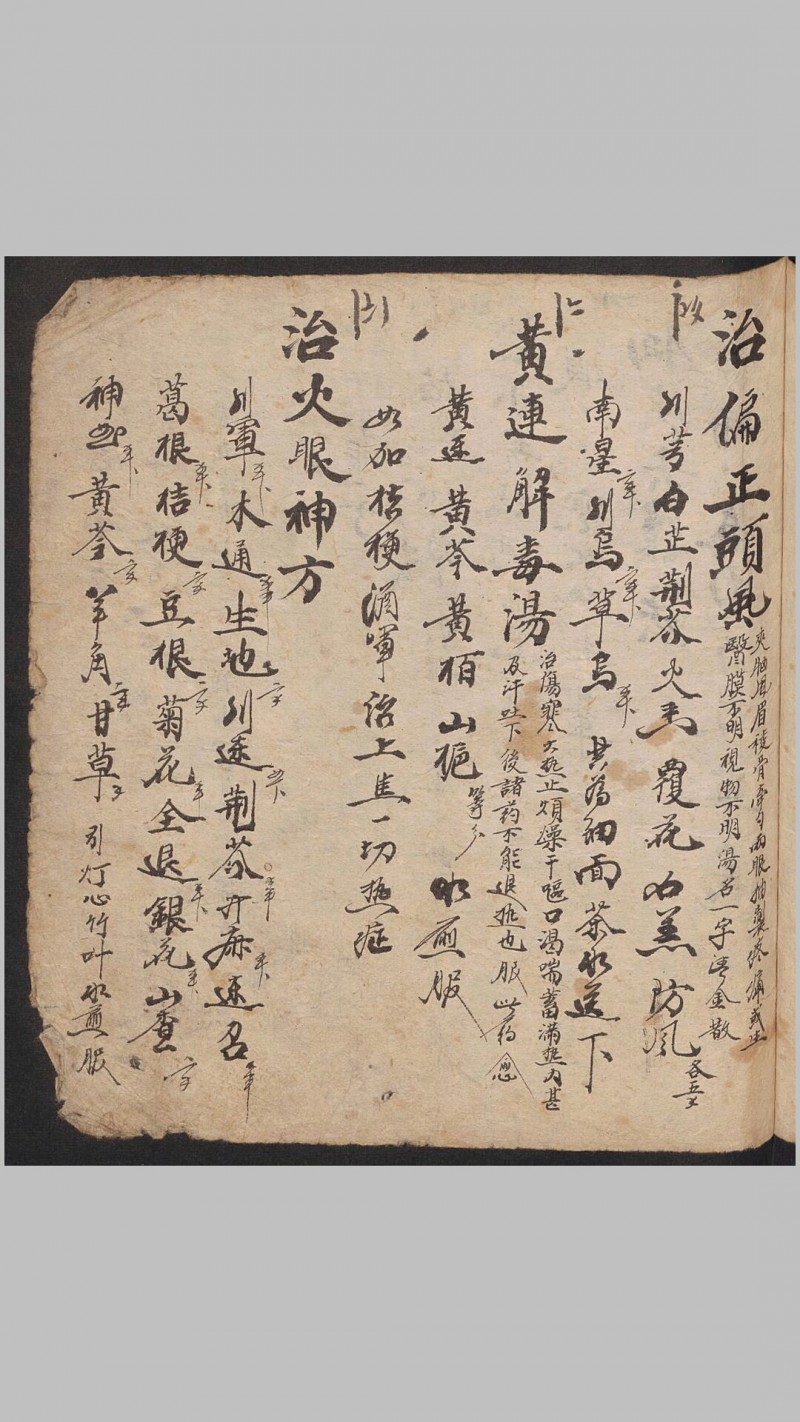 治偏正頭風
夾腦風眉稜骨牽勾兩眼抽
醫膜不明視物不明湯名一字金散
川芎白芷荆芥火麻覆花力羔防風各五
南星川烏草烏 共為細面茶水送下
黃連解毒湯
治傷寒大热止煩燥干嘔口渴喘蓄滿热内甚
及汗吐下後諸药不能退热也服此药愈
黄連黄芩黄栢山梔等分 水煎服
如加桔梗酒軍治上焦一切热症
治火眼神方
川軍木通生地川連荆芥升麻速召
葛根桔梗豆根菊花全退銀花山查
神曲黃芩羊角甘草 引灯心竹叶水煎服